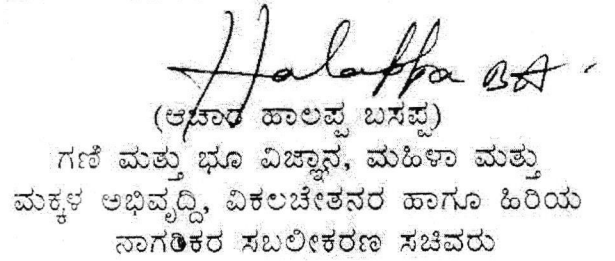 Halappa BA.
(ಆಚಾರ ಹಾಲಪ್ಪ ಬಸಪ್ಪ)
ಗಣಿ ಮತ್ತು ಭೂ ವಿಜ್ಞಾನ, ಮಹಿಳಾ ಮತ್ತು
ಮಕ್ಕಳ ಅಭಿವೃದ್ದಿ, ವಿಕಲಚೇತನರ ಹಾಗೂ ಹಿರಿಯ
ನಾಗರಿಕರ ಸಬಲೀಕರಣ ಸಚಿವರು